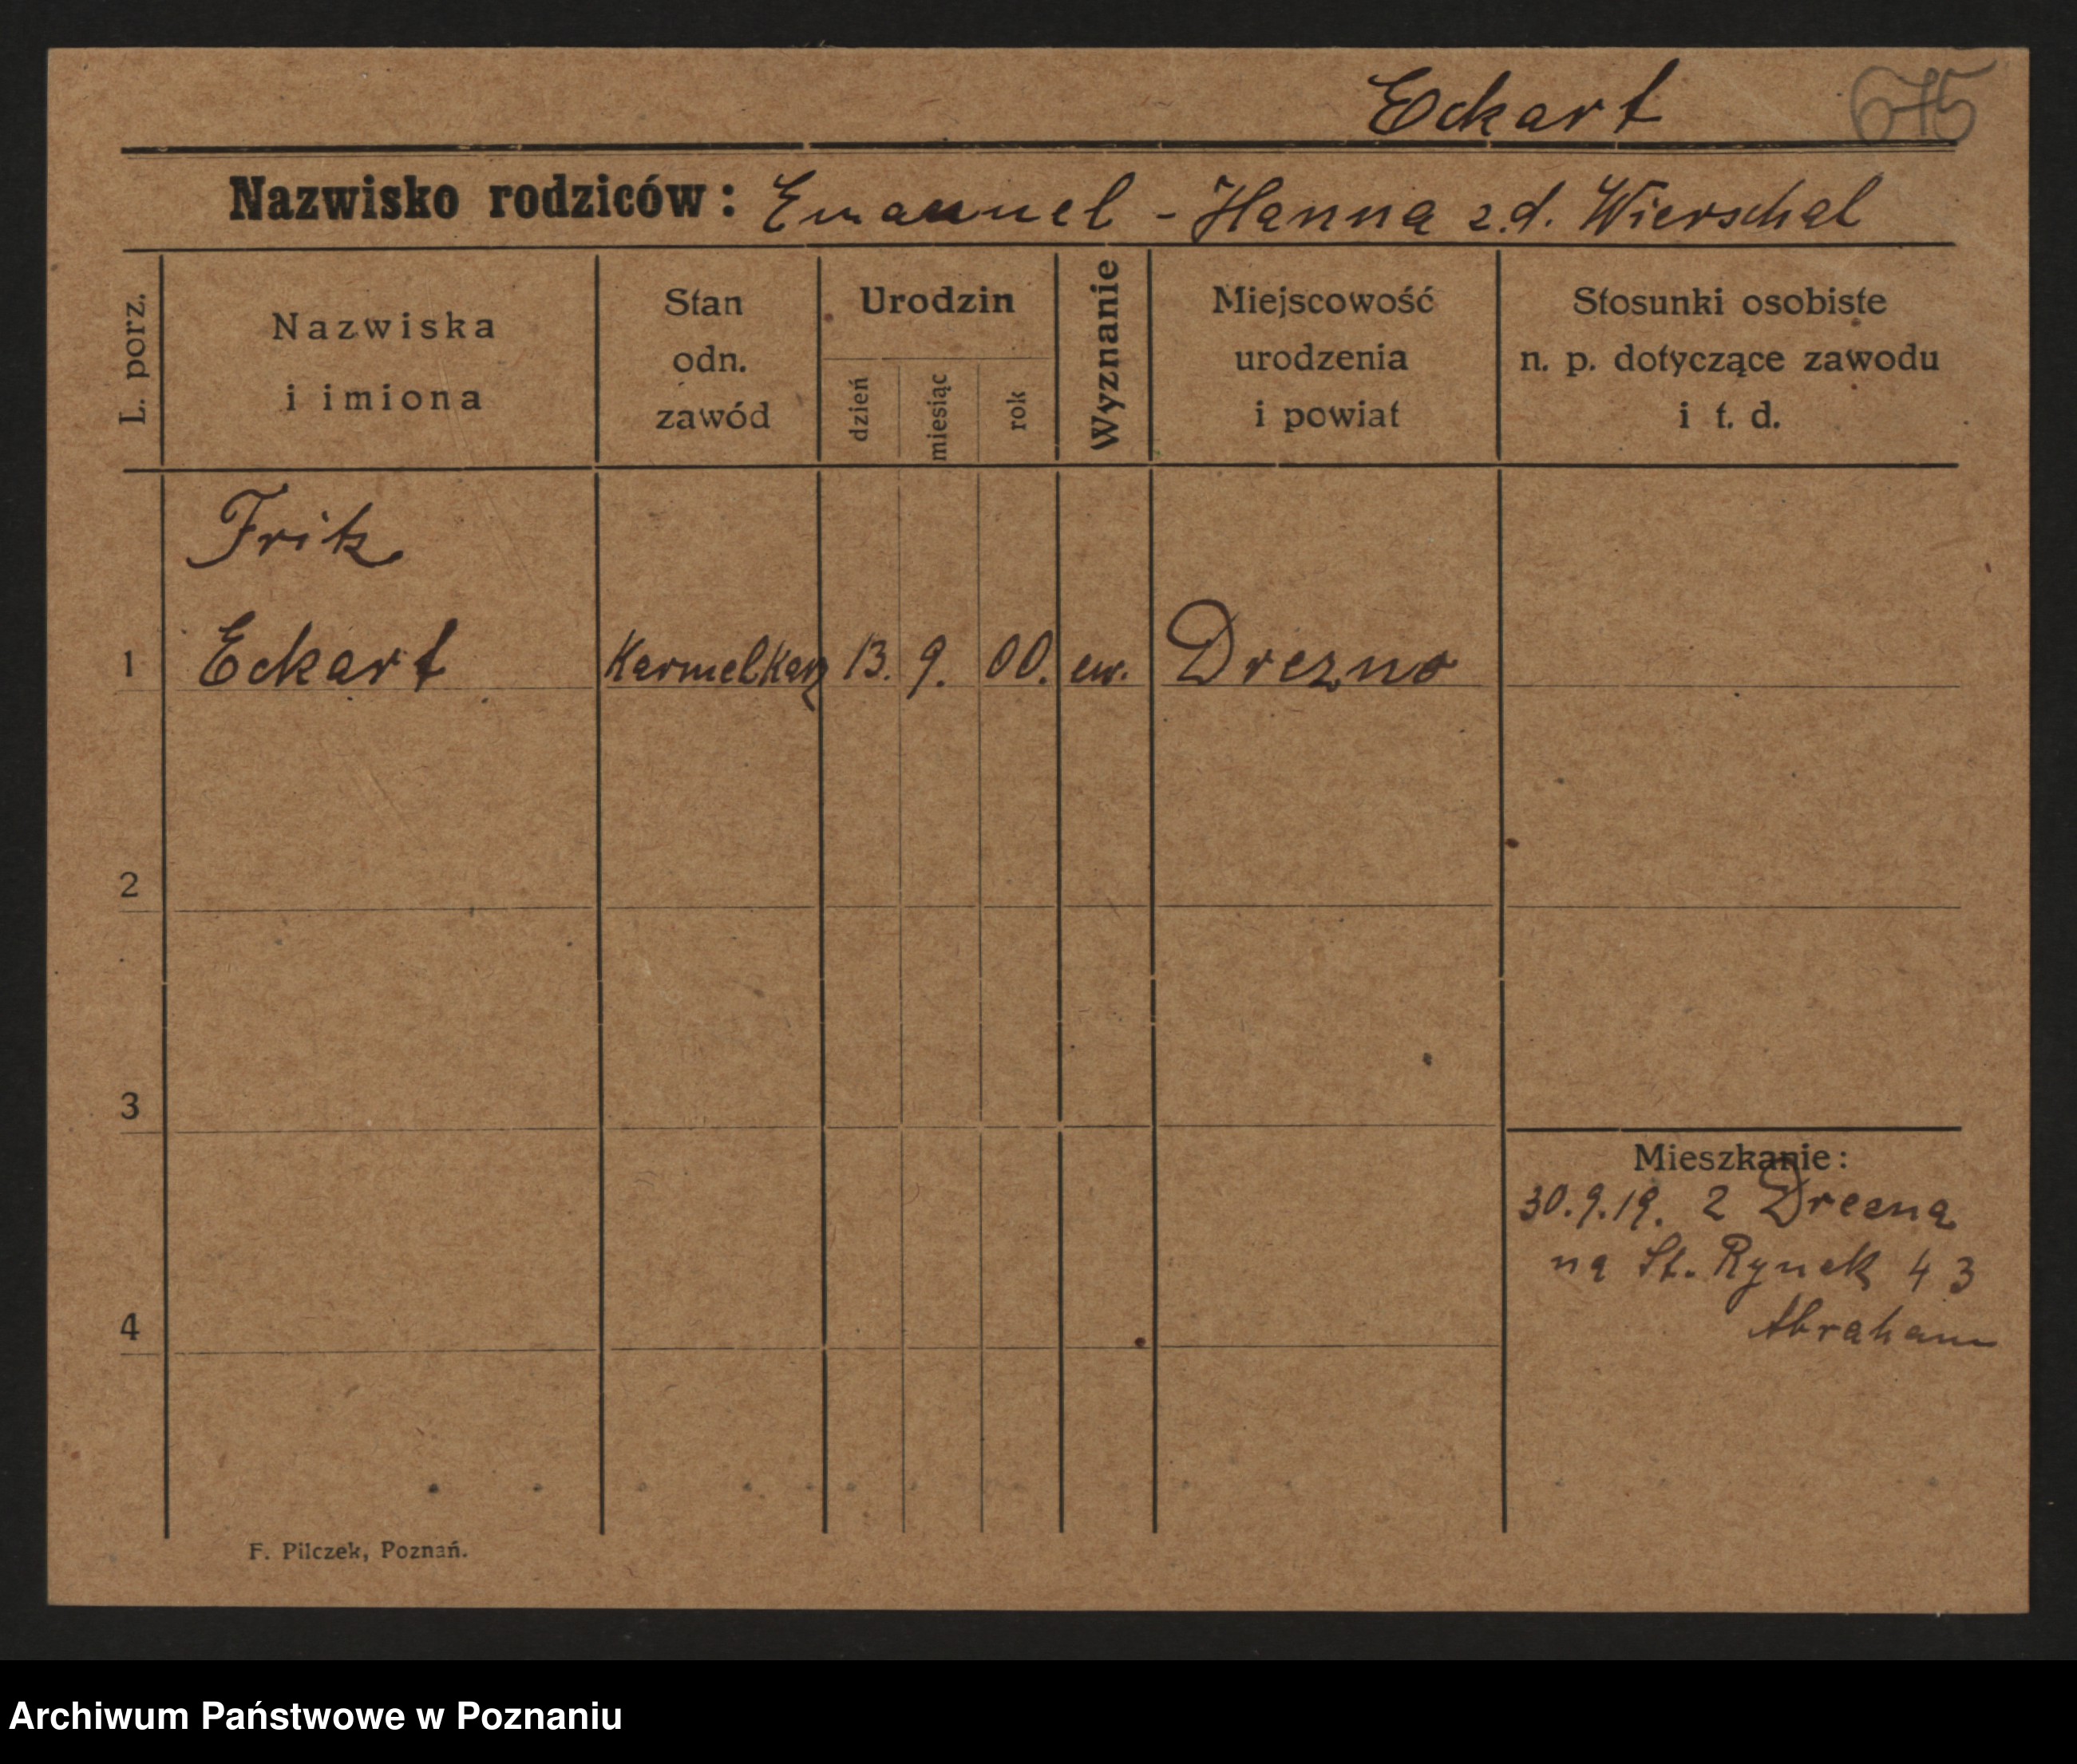 Eckart 675
Nazwisko rodziców: Emanuel - Hanna z.d. Wierschal
L. porz.
Nazwiska
i imiona
Stan
odn.
zawód
Urodzin
dzień
miesiąc
rok
Wyznanie
Miejscowość
urodzenia
i powiat
Stosunki osobiste
n. p. dotyczące zawodu
i t. d.
Fritz
1 Eckart Karmelkarz 13. 9. 00. ew. Drezno
2
3
Mieszkanie:
30.9.19. z Drezna
na St. Rynek 43
Abraham
4
F. Pilczek, Poznań.
Archiwum Państwowe w Poznaniu